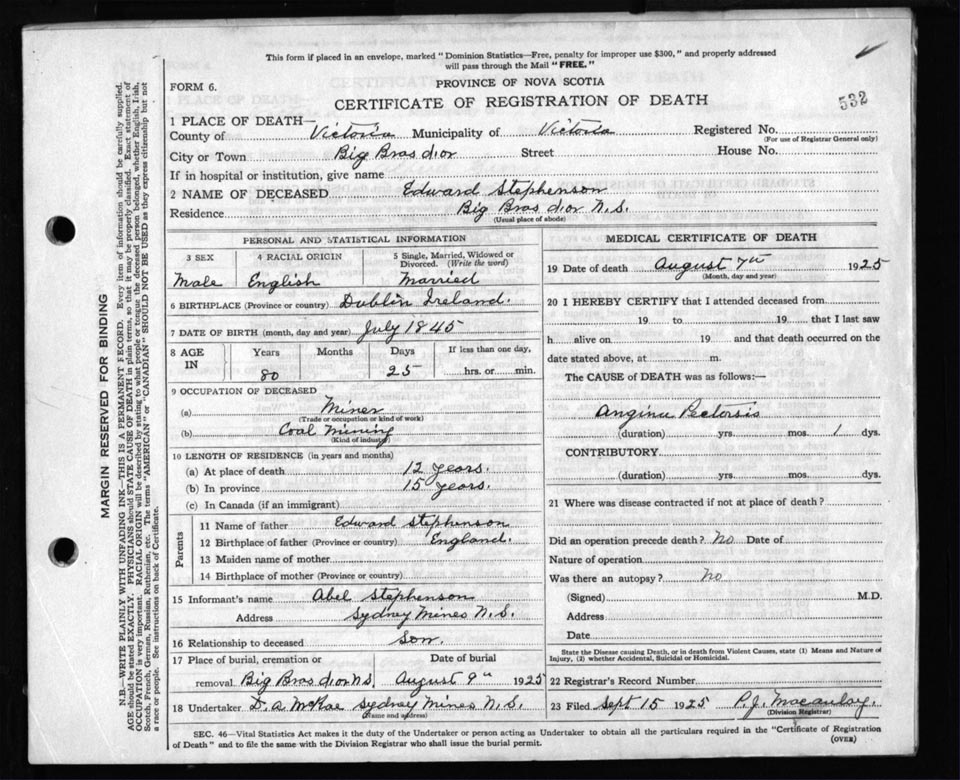 This form if placed in an envelope, marked "Dominion Statistics—Free, penalty for improper use $300," and properly addressed
will pass through the Mail "FREE."
FORM 6.
PROVINCE OF NOVA SCOTIA
CERTIFICATE OF REGISTRATION OF DEATH
532
1 PLACE OF DEATH—
County of Victoria Municipality of Victoria Registered No.
(For use of Registrar General only)
City or Town Big Bras dor Street House No.
If in hospital or institution, give name
2 NAME OF DECEASED Edward Stephenson
Residence Big Bras dor N.S.
(Usual place of abode)
PERSONAL AND STATISTICAL INFORMATION
3 SEX 4 RACIAL ORIGIN 5 Single, Married, Widowed or Divorced. (Write the word)
Male English Married
6 BIRTHPLACE (Province or country) Dublin Ireland.
7 DATE OF BIRTH (month, day and year) July 1845
8 AGE IN Years Months Days If less than one day,
80 25 hrs. or min.
9 OCCUPATION OF DECEASED
(a) Miner
(Trade or occupation or kind of work)
(b) Coal Mining
(Kind of industry)
10 LENGTH OF RESIDENCE (in years and months)
(a) At place of death 12 years.
(b) In province 15 years.
(c) In Canada (if an immigrant)
Parents
11 Name of father Edward Stephenson
12 Birthplace of father (Province or country) England.
13 Maiden name of mother
14 Birthplace of mother (Province or country)
15 Informant's name Abel Stephenson
Address Sydney Mines N.S.
16 Relationship to deceased Son.
17 Place of burial, cremation or Date of burial
removal. Big Bras dor N.S. August 9th 1925
18 Undertaker D. A. McRae Sydney Mines N.S.
(Name and address)
MEDICAL CERTIFICATE OF DEATH
19 Date of death August 7th 1925
(Month, day and year)
20 I HEREBY CERTIFY that I attended deceased from
19 to 19 that I last saw
h alive on 19 and that death occurred on the
date stated above, at m.
The CAUSE of DEATH was as follows:—
Angina Pectorsis
(duration) yrs. mos. 1 dys.
CONTRIBUTORY
(duration) yrs. mos. dys.
21 Where was disease contracted if not at place of death?
Did an operation precede death? No Date of
Nature of operation
Was there an autopsy? No
(Signed) M.D.
Address
Date
State the Disease causing Death, or in death from Violent Causes, state (1) Means and Nature of
Injury, (2) whether Accidental, Suicidal or Homicidal.
22 Registrar's Record Number
23 Filed Sept 15 1925 P.J. Macaulay.
(Division Registrar)
SEC. 46—Vital Statistics Act makes it the duty of the Undertaker or person acting as Undertaker to obtain all the particulars required in the "Certificate of Registration
of Death" and to file the same with the Division Registrar who shall issue the burial permit.
(OVER)
MARGIN RESERVED FOR BINDING
N.B.—WRITE PLAINLY WITH UNFADING INK—THIS IS A PERMANENT RECORD. Every item of information should be carefully supplied.
AGE should be stated EXACTLY. PHYSICIANS should STATE CAUSE OF DEATH in plain terms, so that it may be properly classified. Exact statement of
OCCUPATION is very important. RACIAL ORIGIN will be described by stating to what people or tongue the deceased person belonged, whether English, Irish,
Scotch, French, German, Russian, Ruthenian, etc. The terms "AMERICAN" or "CANADIAN" SHOULD NOT BE USED as they express citizenship but not
a race or people. See instructions on back of Certificate.